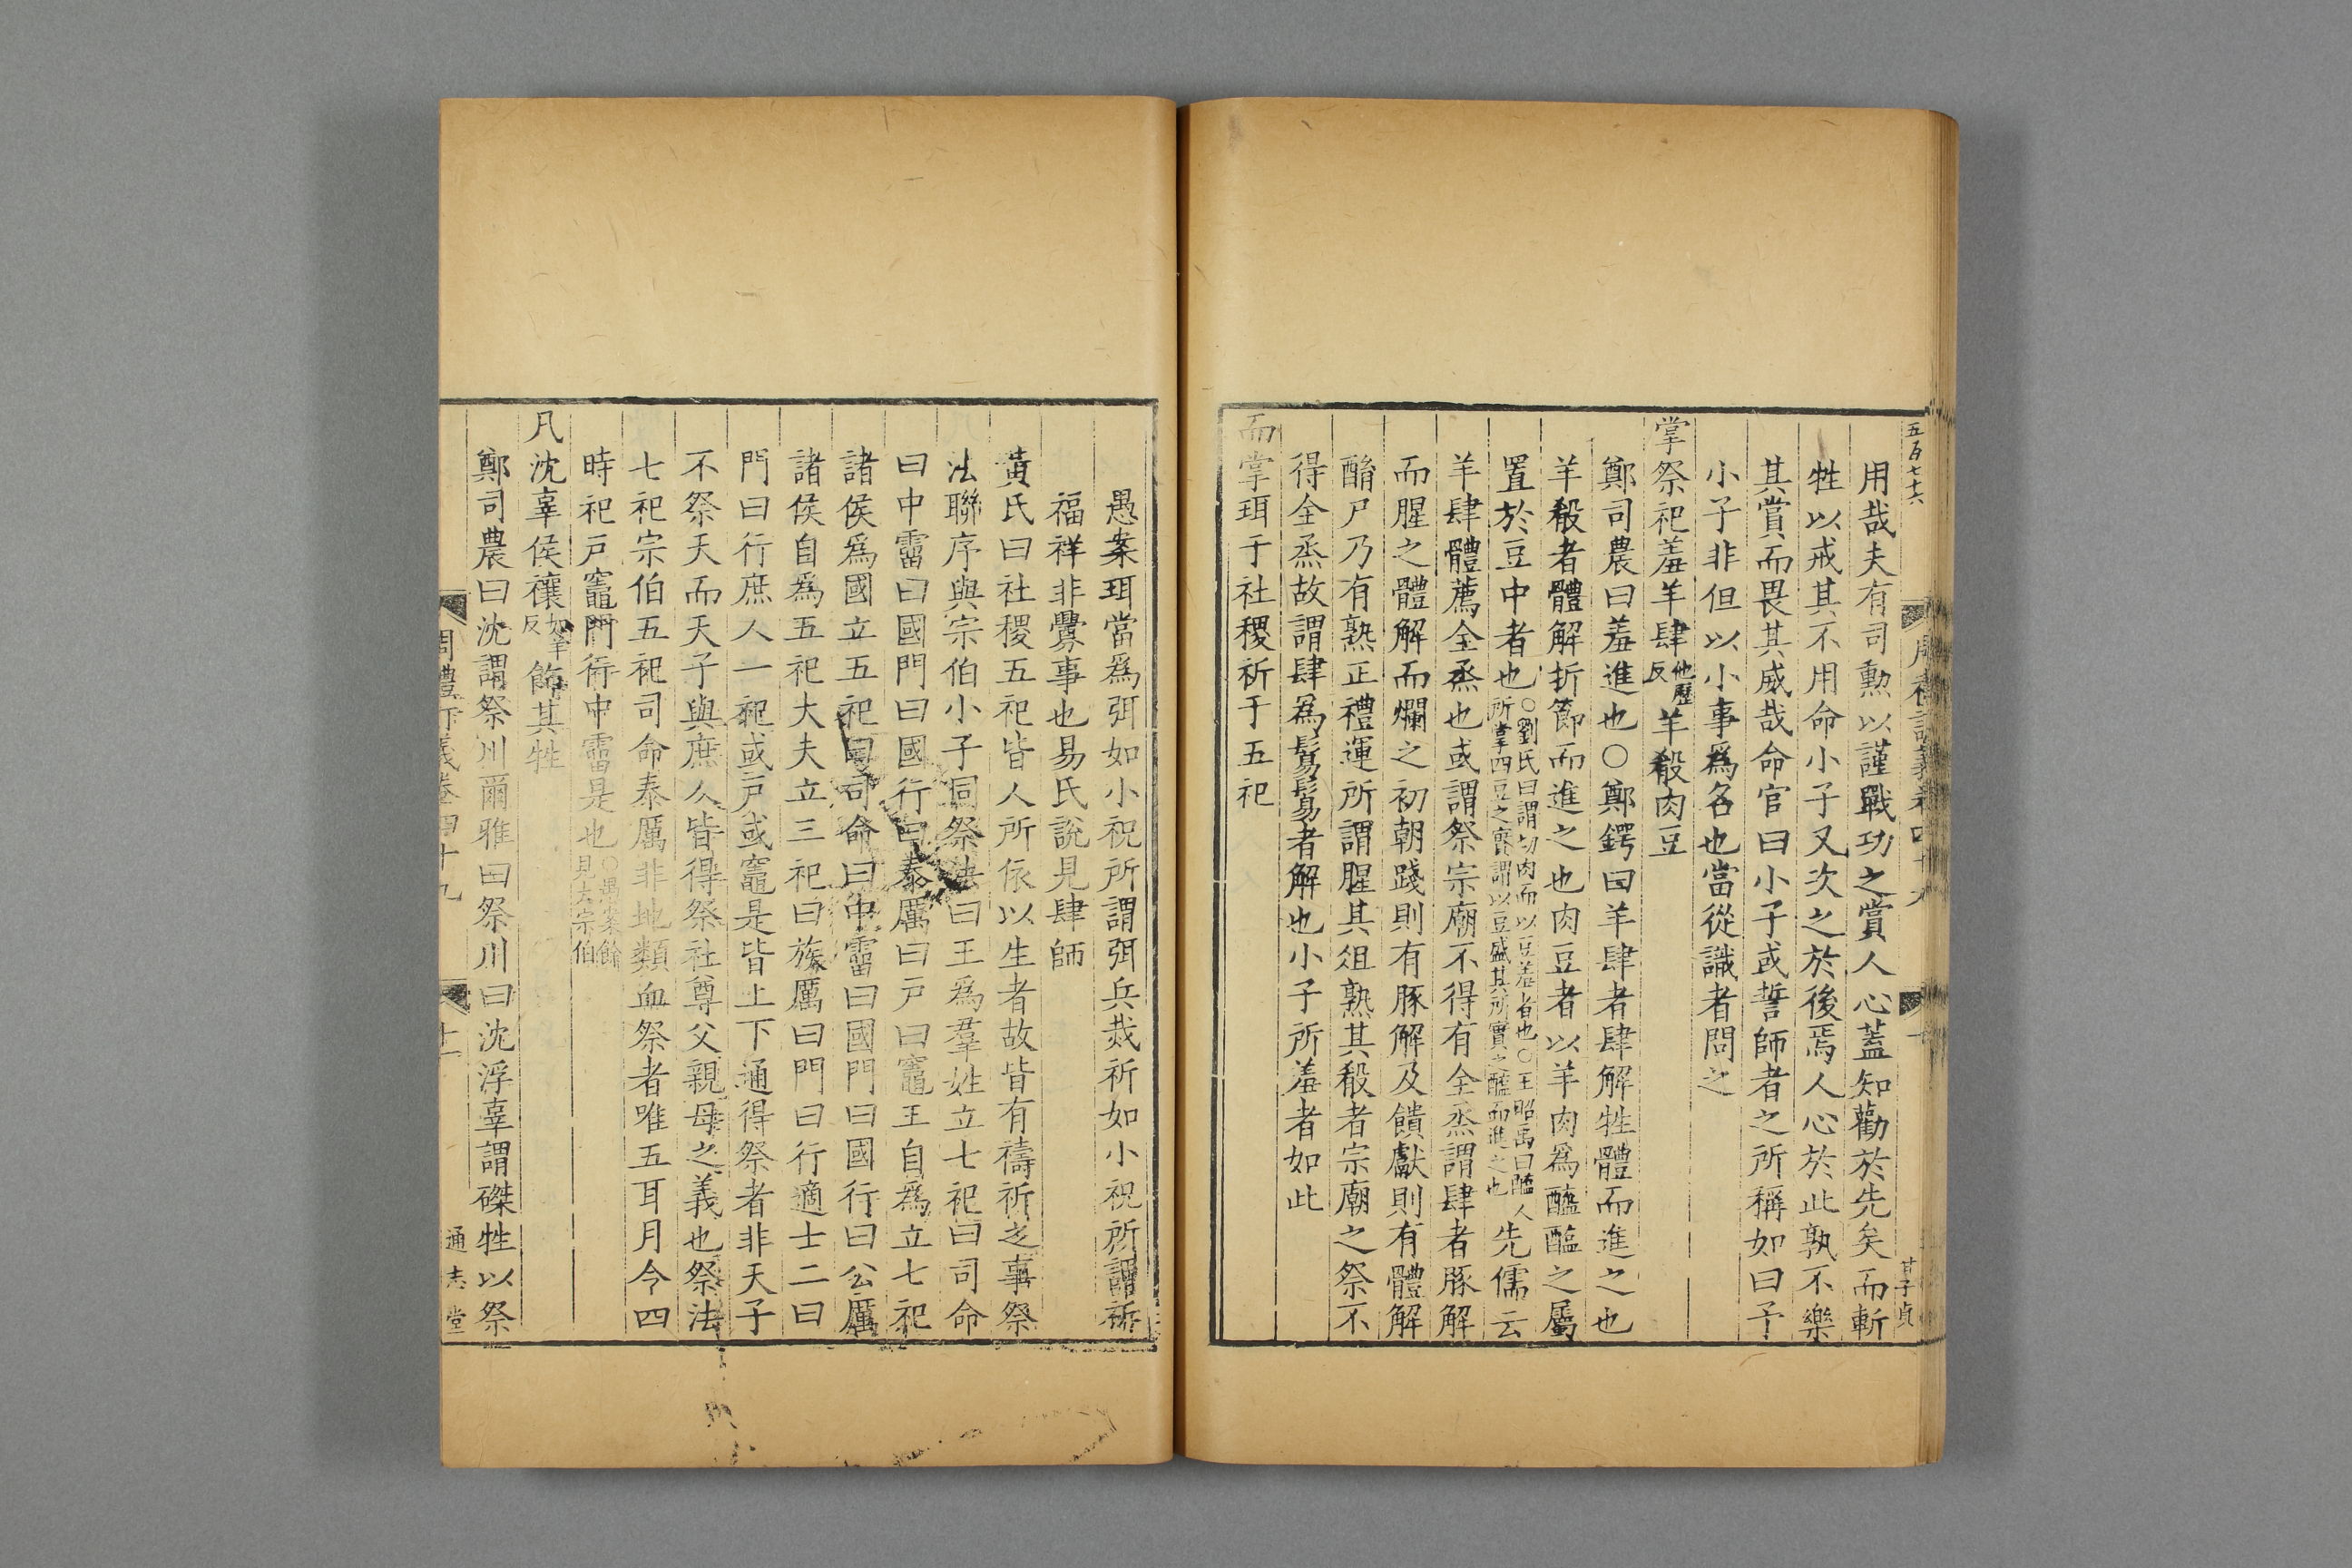 五百七十六
用哉夫有司勲以謹戰功之賞人心蓋知勸於先矣而斬
牲以戒其不用命小子又次之於後焉人心於此孰不樂
其賞而畏其威哉命官曰小子或誓師者之所稱如曰予
小子非但以小事爲名也當從識者問之
掌祭祀羞羊肆他歷反羊殽肉豆
鄭司農曰羞進也○鄭鍔曰羊肆者肆解牲體而進之也
羊殽者體解折節而進之也肉豆者以羊肉爲醢醢之屬
置於豆中者也○劉氏曰謂切肉而以豆羞者也○王昭禹曰醢人所掌四豆之實謂以豆盛其所實之醢而進之也先儒云
羊肆體薦全烝也或謂祭宗廟不得有全烝謂肆者豚解
而腥之體解而爓之初朝踐則有豚解及饋獻則有體解
酳尸乃有熟正禮運所謂腥其俎熟其殽者宗廟之祭不
得全烝故謂肆爲鬄鬄者解也小子所羞者如此
而掌珥于社稷祈于五祀
甘子貞
愚案珥當爲弭如小祝所謂弭兵烖祈如小祝所謂祈
福祥非釁事也易氏說見肆師
黃氏曰社稷五祀皆人所依以生者故皆有禱祈之事祭
法聯序與宗伯小子同祭法曰王爲羣姓立七祀曰司命
曰中霤曰國門曰國行曰泰厲曰戸曰竈王自爲立七祀
諸侯爲國立五祀曰司命曰中霤曰國門曰國行曰公厲
諸侯自爲五祀大夫立三祀曰族厲曰門曰行適士二曰
門曰行庶人一祀或戸或竈是皆上下通得祭者非天子
不祭天而天子與庶人皆得祭社尊父親母之義也祭法
七祀宗伯五祀司命泰厲非地類血祭者唯五耳月令四
時祀戸竈門行中霤是也○愚案餘見大宗伯
凡沈辜侯禳如羊反飾其牲
鄭司農曰沈謂祭川爾雅曰祭川曰沈浮辜謂磔牲以祭
周禮訂義卷四十九
十一
通志堂